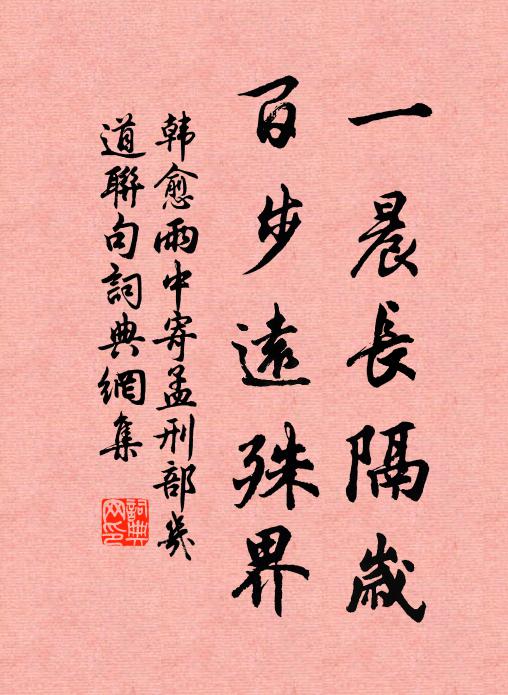 一晨長隔歲
百步遠殊界
韓愈雨中寄孟刑部幾
道聯句詞典網集
詞典
网印